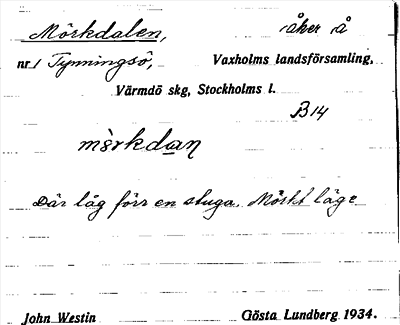 Mörkdalen, åker å
nr 1 Tynningsö, Vaxholms landsförsamling,
Värmdö skg, Stockholms l.
B14
mèrkdan
Där låg förr en stuga. Mörkt läge
John Westin Gösta Lundberg 1934.